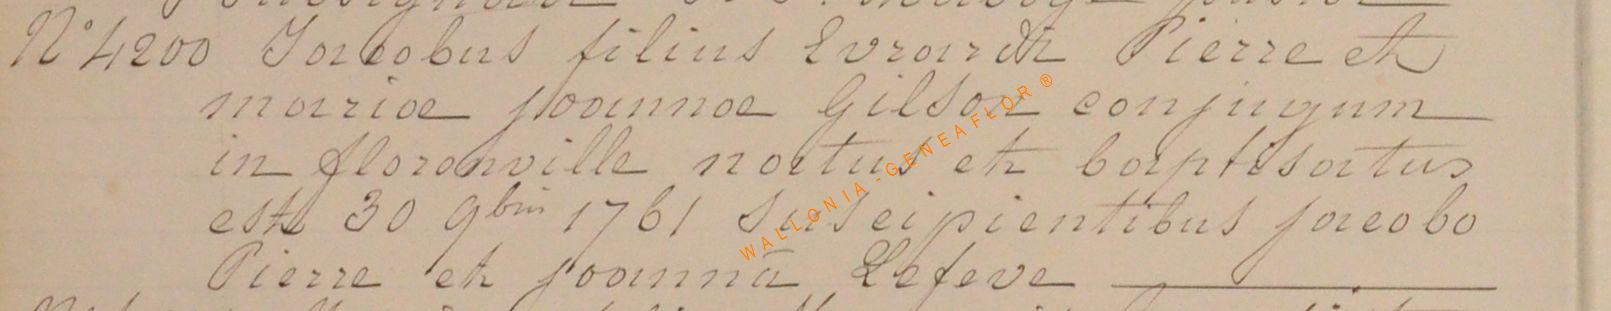 N° 4200 Jacobus filius Evrardi Pierre et
mariae joannae Gilson conjugum
in florenville natus et baptisatus
est 30 9bris 1761 suscipientibus jacobo
Pierre et joannâ Lefeve
WALLONIA-GENEAFLOR®